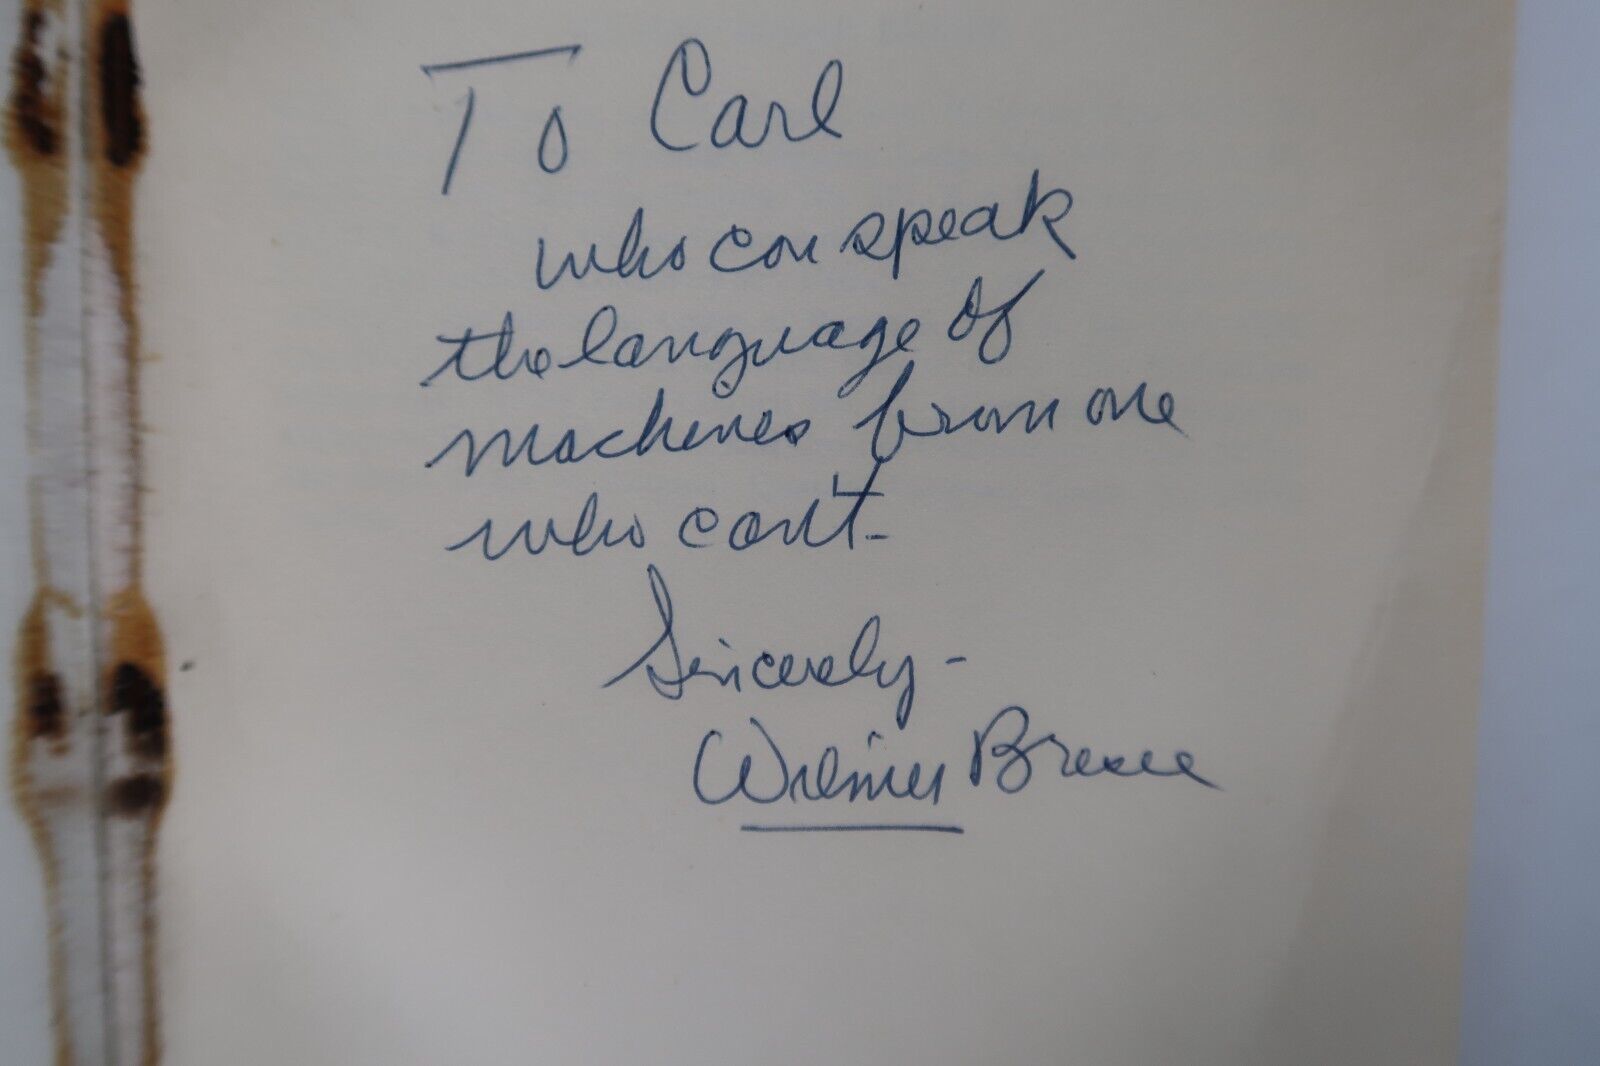 To Carl
who can speak
the language of
machines from one
who can't-
Sincerely-
Wilmer